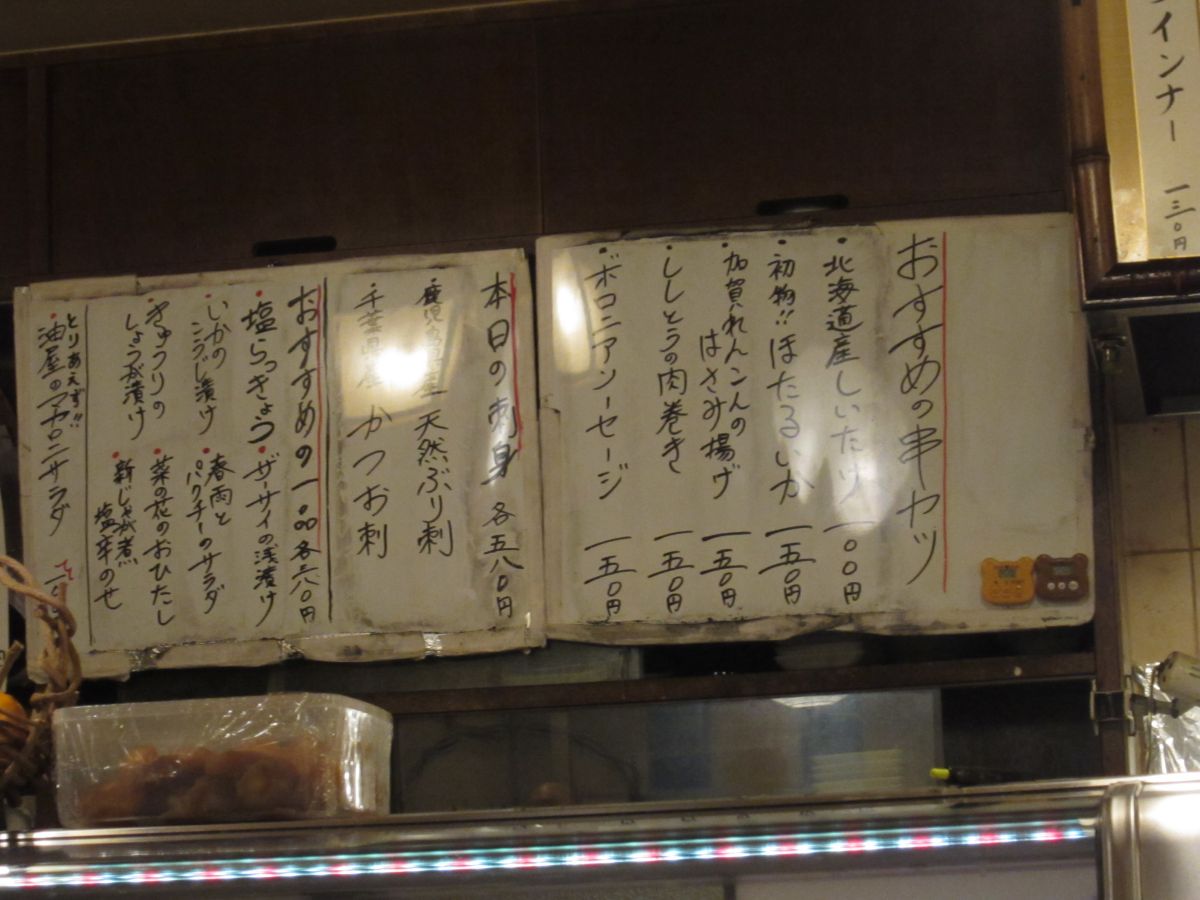 インナー 一三〇円
おすすめの串カツ
・北海道産しいたけ 一〇〇円
・初物!!ほたるいか 一五〇円
・加賀れんこんの
はさみ揚げ 一五〇円
・ししとうの肉巻き 一五〇円
・ボロニアソーセージ 一五〇円
本日の刺身 各五八〇円
・鹿児島県産 天然ぶり刺
・千葉県産 かつお刺
おすすめの一品 各二八〇円
・塩らっきょう
・ザーサイの浅漬け
・いかの
こうじ漬け
・春雨と
パクチーのサラダ
・きゅうりの
しょうが漬け
・菜の花のおひたし
・新じゃが煮
塩辛のせ
とりあえず!!
・油屋のマカロニサラダ